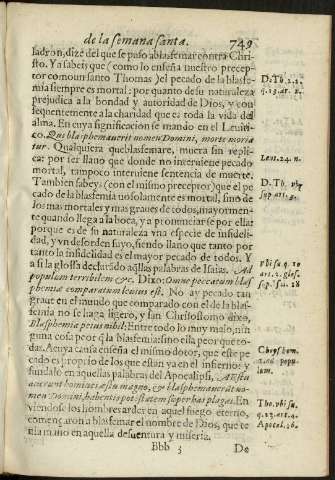 de la semana santa. 749
ladron, dize del que se puso a blasfemar contra Chri-
sto. Ya sabeys que (como lo enseña nuestro precep-
tor comoun santo Thomas) el pecado de la blasfe-
mia siempre es mortal: por quanto de su naturaleza
prejudica a la bondad y autoridad de Dios, y con
sequentemente a la charidad que es toda la vida del
alma. En cuya significacion se mando en el Leuiti-
co. Qui blasphemauerit nomen Domini, morte moria
tur. Qualquiera que blasfemare, muera sin repli-
ca: por ser llano que donde no interuiene pecado
mortal, tampoco interuiene sentencia de muerte.
Tambien sabeys (con el mismo preceptor) que el pe
cado de la blasfemia no solamente es mortal, sino de
los mas mortales y mas graues de todos, mayormen-
te quando llega a la boca, y a pronunciarse por ella:
porque es de su naturaleza vna especie de infideli-
dad, y vn desorden suyo, siendo llano que tanto por
tanto la infidelidad es el mayor pecado de todos. Y
a si la glossa declarãdo aq̃llas palabras de Isaias. Ad
populum terribilem &c. Dixo: Omne peccatum blas
phemia comparatum leuius est. No ay pecado tan
graue en el mundo que comparado con el de la blas-
femia no se haga ligero, y san Chrisostomo dixo,
Blasphemia peius nihil: Entre todo lo muy malo, nin
guna cosa peor q̃ la blasfemia: sino ella peor que to-
das. Acuya causa enseña el mismo dotor, que este pe
cado es proprio de los que estan ya en el infierno: y
fundase en aquellas palabras del Apocalipsi, Aestu
auerunt homines aestu magno, & blasphemauerũt no-
men Domini, habentis potestatem super has plagas. En
viendose los hombres arder en aquel fuego eterno,
començaron a blasfemar el nombre de Dios, que te
nia mano en aquella desuentura y miseria.
Bbb 3 De
D. Tho. 2. 2.
q. 13. ar. 2.
Leui. 24. n.
D. Th. vbi
sup. art. 3.
Vbi su. q. 10
art. 2. glos.
sup. Isa. 18
Chrysostom.
ad po. popu-
lum.
Tho. vbi su.
q. 13. art. 4.
Apocal. 16.